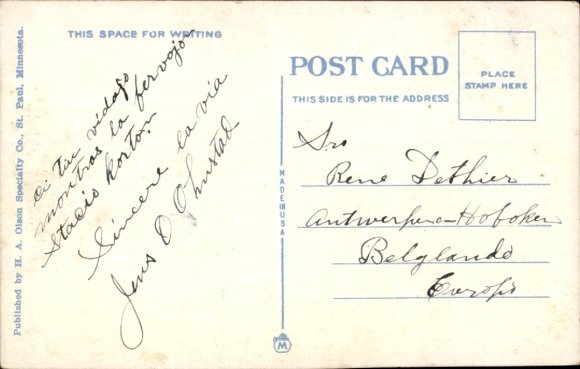 Published by H. A. Olson Specialty Co., St. Paul, Minnesota.
THIS SPACE FOR WRITING
ci tiu vidajo
montras la fervojo
Stacio korton
Sincere la via
Jens O Ohnstad
MADE IN USA
M
POST CARD
THIS SIDE IS FOR THE ADDRESS
PLACE
STAMP HERE
Sro
Rene Dethier
Antwerpen-Hoboken
Belglando
Europo